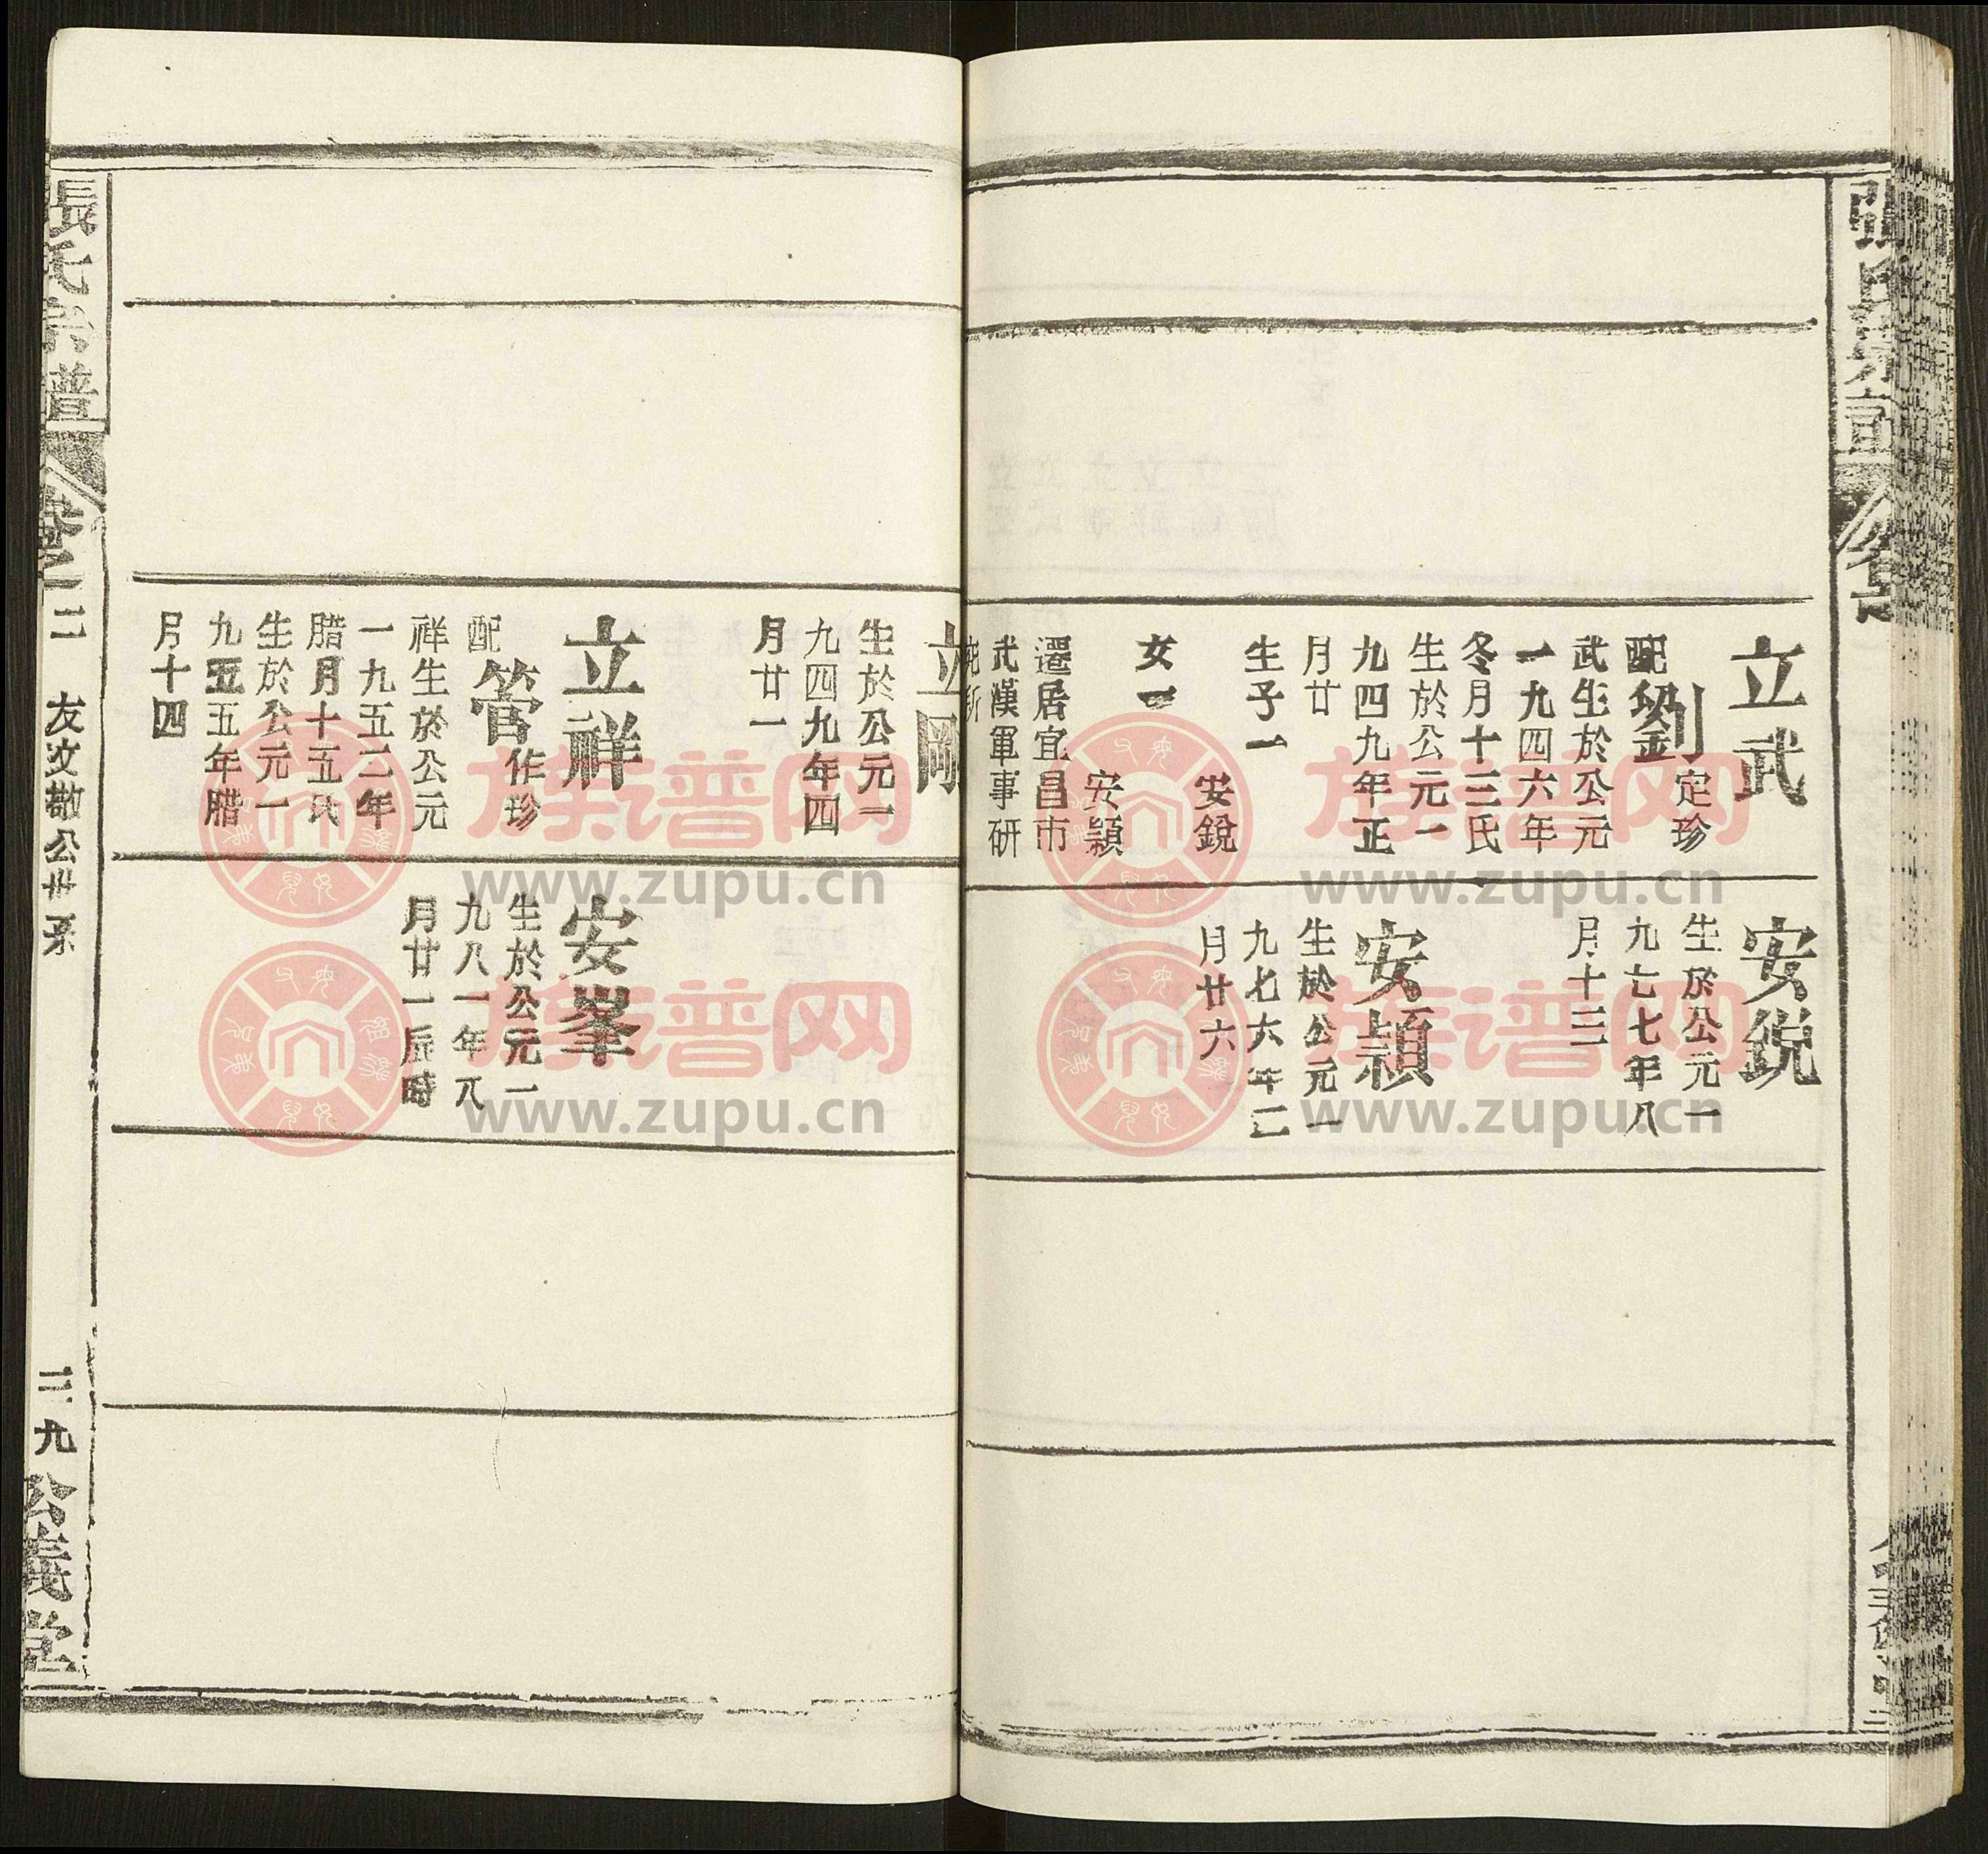 立武
配劉定珍
武生於公元
一九四六年
冬月十三氏
生於公元一
九四九年正
月廿
生子一
安銳
女一
安穎
遷居宜昌市
武漢軍事研
安銳
生於公元一
九七七年八
月十三
安穎
生於公元一
九七六年二
月廿六
立剛
生於公元一
九四九年四
月廿一
立祥
配管作珍
祥生於公元
一九五二年
腊月十五氏
生於公元一
九五五年腊
月十四
安峯
生於公元一
九八一年八
月廿一辰時
張氏宗譜
卷之二
友文敬公世系
三九
公義堂
族谱网
www.zupu.cn
族谱网
www.zupu.cn
族谱网
www.zupu.cn
族谱网
www.zupu.cn